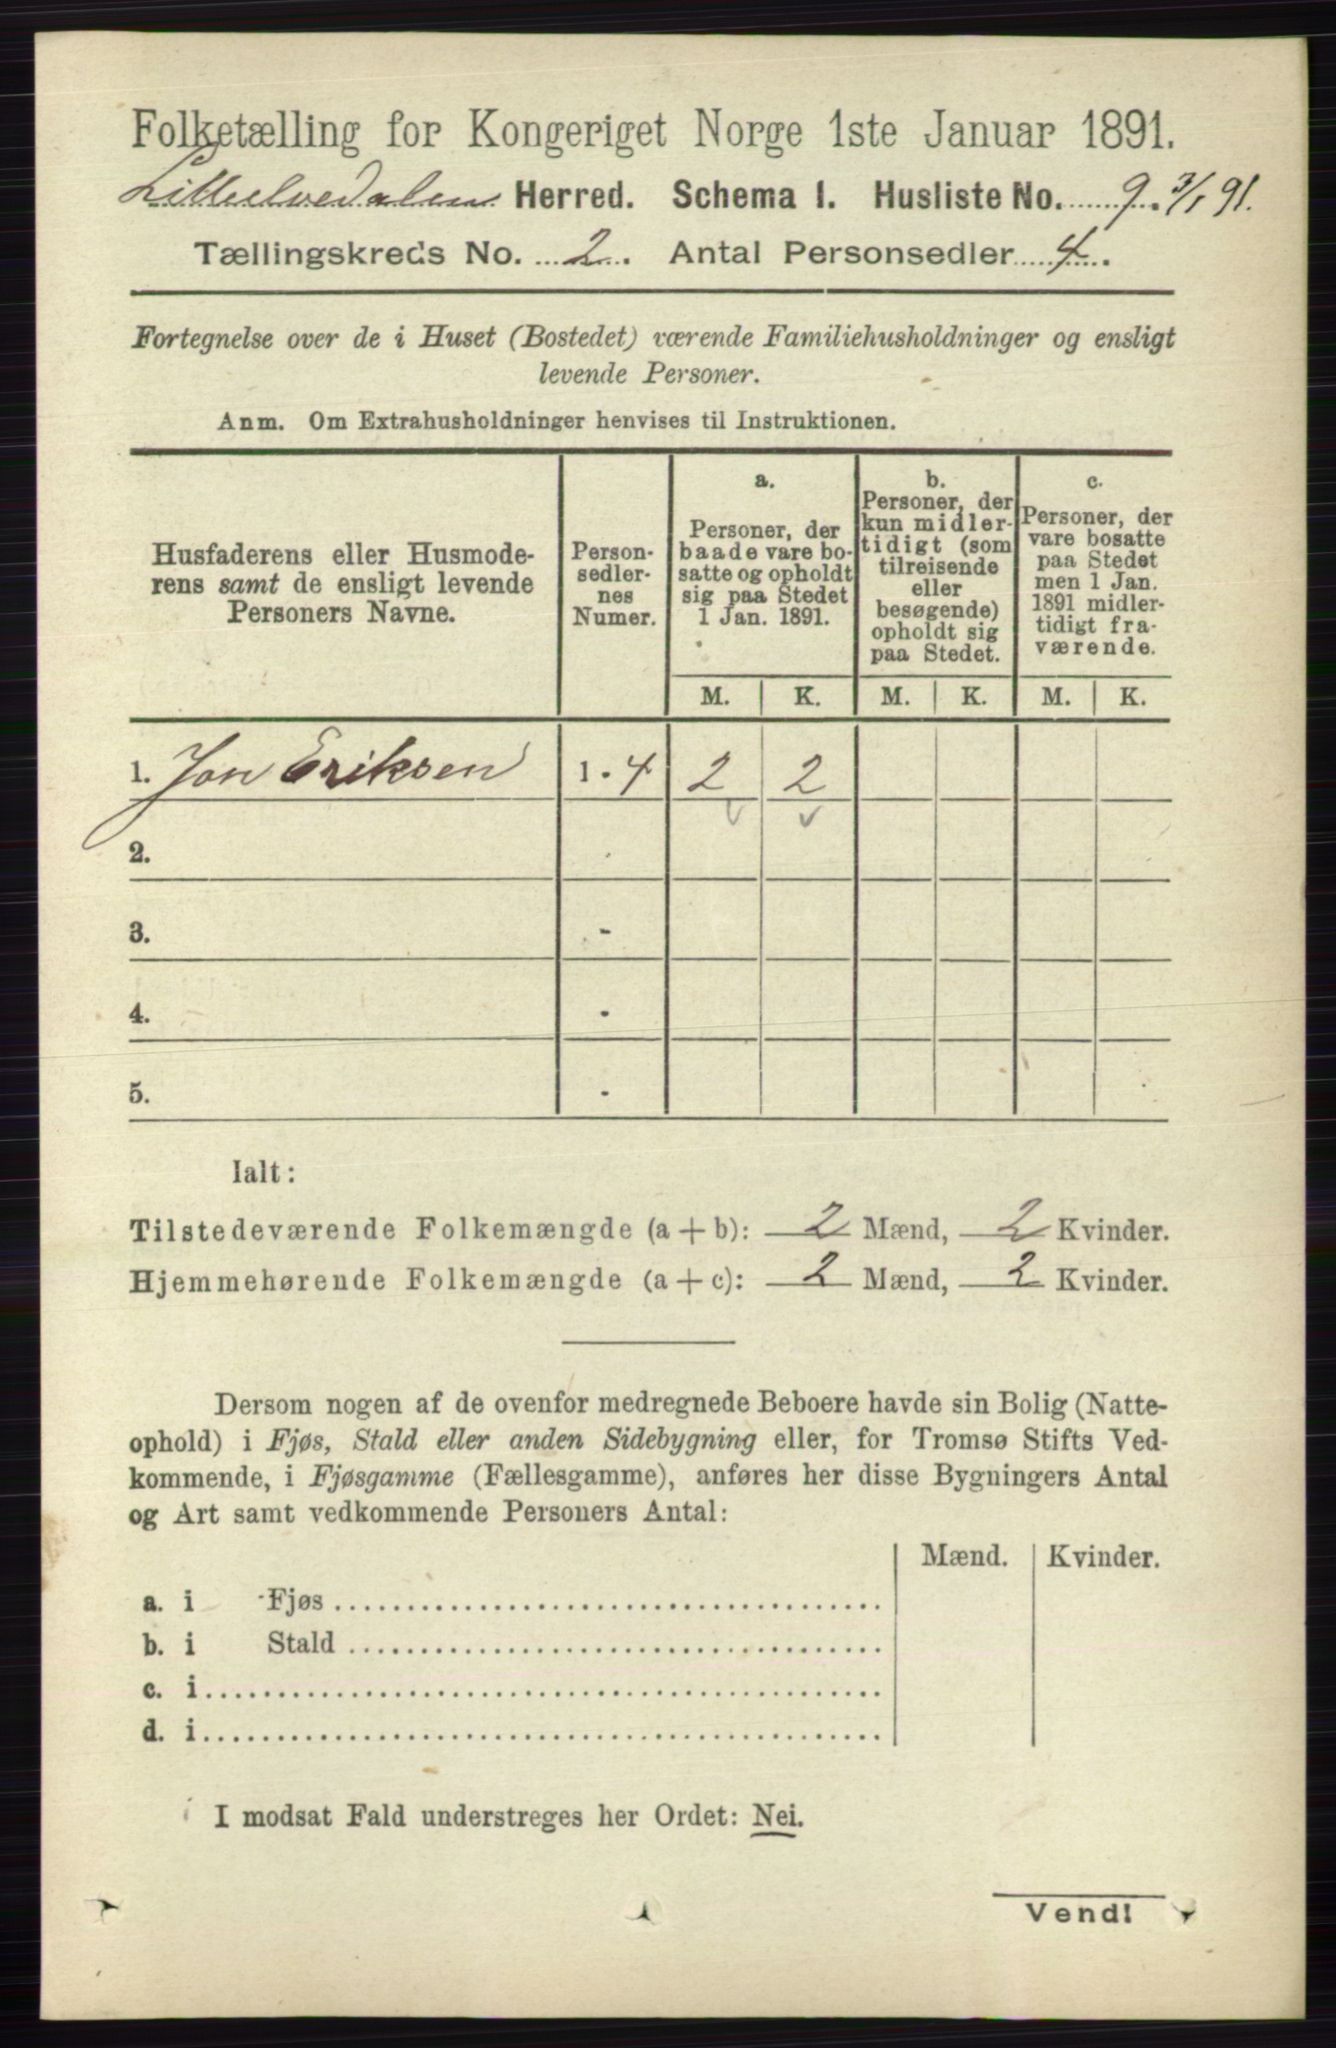 Folketælling for Kongeriget Norge 1ste Januar 1891.
Lilleelvedalen Herred. Schema 1. Husliste No. 9. 3/1 91.
Tællingskreds No. 2. Antal Personsedler 4.
Fortegnelse over de i Huset (Bostedet) værende Familiehusholdninger og ensligt
levende Personer.
Anm. Om Extrahusholdninger henvises til Instruktionen.
Husfaderens eller Husmode-
rens samt de ensligt levende
Personers Navne.
Person-
sedler-
nes
Numer.
a.
Personer, der
baade vare bo-
satte og opholdt
sig paa Stedet
1 Jan. 1891.
b.
Personer, der
kun midler-
tidigt (som
tilreisende
eller
besøgende)
opholdt sig
paa Stedet.
c.
Personer, der
vare bosatte
paa Stedet
men 1 Jan.
1891 midler-
tidigt fra-
værende.
M. K. M. K. M. K.
1. Jon Eriksen 1 - 4 2 2
2.
3. -
4. -
5. -
Ialt:
Tilstedeværende Folkemængde (a + b): 2 Mænd, 2 Kvinder.
Hjemmehørende Folkemængde (a + c): 2 Mænd, 2 Kvinder.
Dersom nogen af de ovenfor medregnede Beboere havde sin Bolig (Natte-
ophold) i Fjøs, Stald eller anden Sidebygning eller, for Tromsø Stifts Ved-
kommende, i Fjøsgamme (Fællesgamme), anføres her disse Bygningers Antal
og Art samt vedkommende Personers Antal:
Mænd. Kvinder.
a. i Fjøs
b. i Stald
c. i
d. i
I modsat Fald understreges her Ordet: Nei.
Vend!